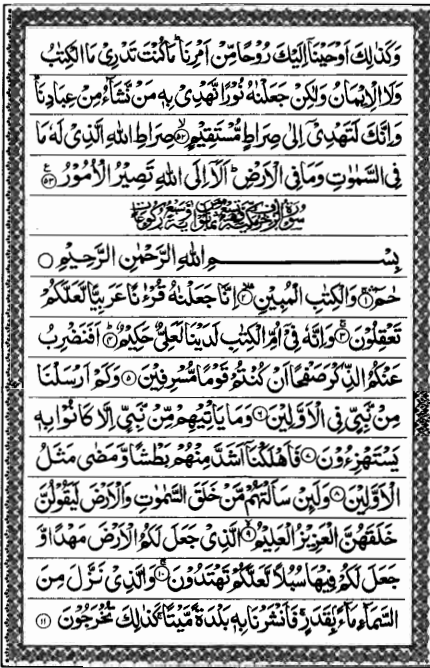 وَكَذٰلِكَ اَوْحَيْنَآ اِلَيْكَ رُوْحًا مِّنْ اَمْرِنَا ؕ مَا كُنْتَ تَدْرِىْ مَا الْكِتٰبُ
وَلَا الْاِيْمَانُ وَلٰكِنْ جَعَلْنٰهُ نُوْرًا نَّهْدِىْ بِهٖ مَنْ نَّشَآءُ مِنْ عِبَادِنَا ؕ
وَاِنَّكَ لَتَهْدِىْٓ اِلٰى صِرَاطٍ مُّسْتَقِيْمٍ ۙ﴿۵۲﴾ صِرَاطِ اللّٰهِ الَّذِىْ لَهٗ مَا
فِى السَّمٰوٰتِ وَمَا فِى الْاَرْضِ ؕ اَلَآ اِلَى اللّٰهِ تَصِيْرُ الْاُمُوْرُ ﴿۵۳﴾
بِسْمِ اللّٰهِ الرَّحْمٰنِ الرَّحِيْمِ
حٰمٓ ﴿۱﴾ وَالْكِتٰبِ الْمُبِيْنِ ﴿۲﴾ اِنَّا جَعَلْنٰهُ قُرْءٰنًا عَرَبِيًّا لَّعَلَّكُمْ
تَعْقِلُوْنَ ﴿۳﴾ وَاِنَّهٗ فِىْٓ اُمِّ الْكِتٰبِ لَدَيْنَا لَعَلِىٌّ حَكِيْمٌ ﴿۴﴾ اَفَنَضْرِبُ
عَنْكُمُ الذِّكْرَ صَفْحًا اَنْ كُنْتُمْ قَوْمًا مُّسْرِفِيْنَ ﴿۵﴾ وَكَمْ اَرْسَلْنَا
مِنْ نَّبِىٍّ فِى الْاَوَّلِيْنَ ﴿۶﴾ وَمَا يَاْتِيْهِمْ مِّنْ نَّبِىٍّ اِلَّا كَانُوْا بِهٖ
يَسْتَهْزِءُوْنَ ﴿۷﴾ فَاَهْلَكْنَآ اَشَدَّ مِنْهُمْ بَطْشًا وَّمَضٰى مَثَلُ
الْاَوَّلِيْنَ ﴿۸﴾ وَلَئِنْ سَاَلْتَهُمْ مَّنْ خَلَقَ السَّمٰوٰتِ وَالْاَرْضَ لَيَقُوْلُنَّ
خَلَقَهُنَّ الْعَزِيْزُ الْعَلِيْمُ ﴿۹﴾ الَّذِىْ جَعَلَ لَكُمُ الْاَرْضَ مَهْدًا وَّ
جَعَلَ لَكُمْ فِيْهَا سُبُلًا لَّعَلَّكُمْ تَهْتَدُوْنَ ﴿۱۰﴾ وَالَّذِىْ نَزَّلَ مِنَ
السَّمَآءِ مَآءًۢ بِقَدَرٍ ۚ فَاَنْشَرْنَا بِهٖ بَلْدَةً مَّيْتًا ۚ كَذٰلِكَ تُخْرَجُوْنَ ﴿۱۱﴾